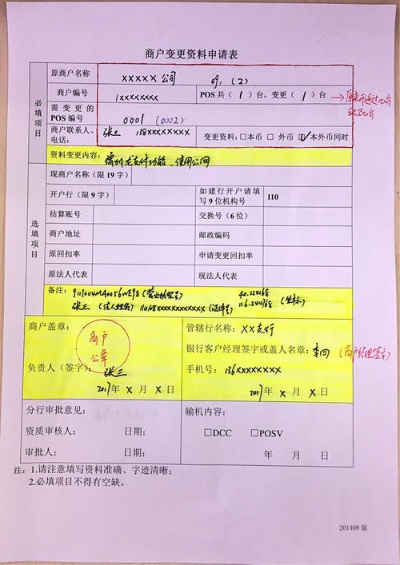 商户变更资料申请表
必填项目
原商户名称 XXXXX 公司 (2)
商户编号 1XXXXXXXX POS共（1）台，变更（1）台
需变更的POS编号 0001 (0002)
商户联系人、电话: 张三 138XXXXXXXX 变更资料: □本币 □外币 ☑本外币同时
资料变更内容: 使用公网
选填项目
现商户名称（限 19 字）
开户行（限 9 字） 如建行开户请填写 9 位机构号 110
结算账号 交换号（6 位）
商户地址 邮政编码
原回扣率 申请变更回扣率
原法人代表 现法人代表
备注:
张三
商户盖章: 商户公章
负责人（签字）: 张三
2017年 X 月 X 日
管辖行名称: XX支行
银行客户经理签字或盖人名章: 李四 (客户经理签字)
手机号: 136XXXXXXXX
2017年 X 月 X 日
分行审批意见:
资质审核人: 日期:
审批人: 日期:
输机内容:
□DCC □POSV
注: 1.请注意填写资料准确、字迹清晰;
2.必填项目不得有空缺。
201408 版